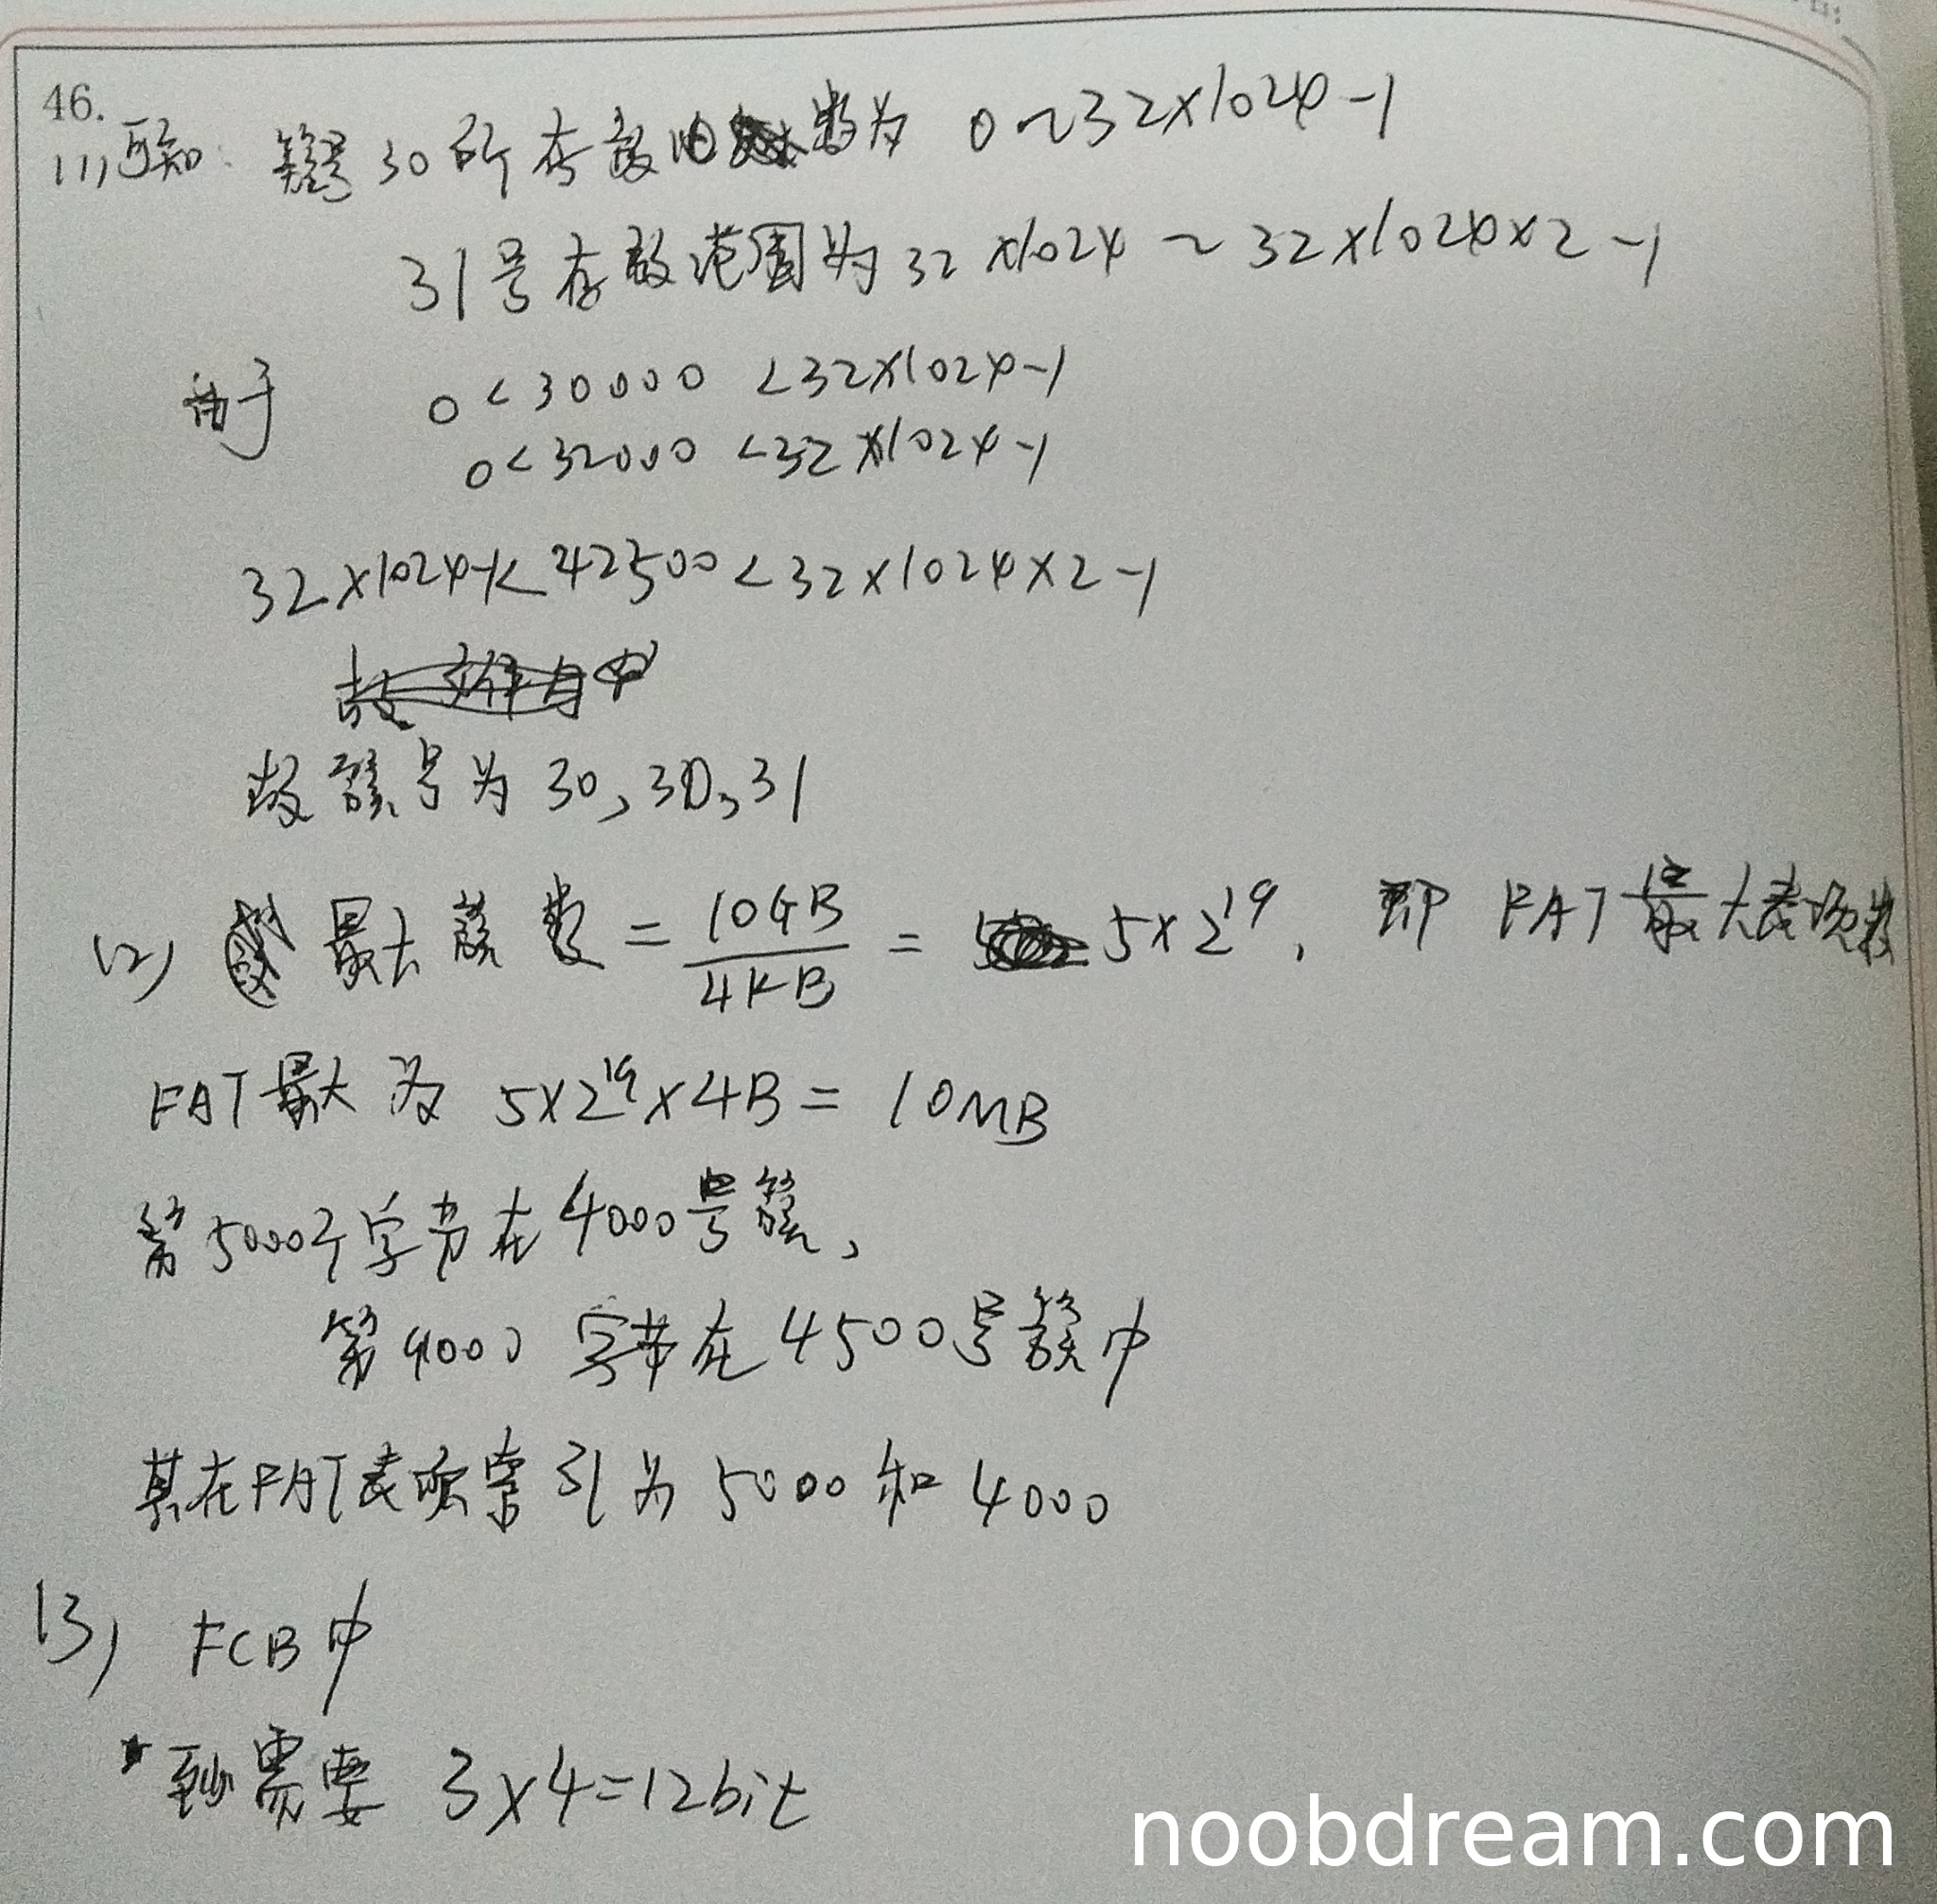 46.
(1)可知: 簇号30所存放的数为 0~32×1024-1
31号存放范围为 32×1024 ~ 32×1024×2-1
由于 0<30000 <32×1024-1
0<32000 <32×1024-1
32×1024-1< 42500 <32×1024×2-1
故簇号为 30,30,31
(2) 最大簇数 = 10GB / 4KB = 5×2¹⁹, 即 FAT最大表项数
FAT最大为 5×2¹⁹×4B = 10MB
第5000个字节在4000号簇,
第9000 字节在4500号簇中
其在FAT表项索引为 5000 和 4000
(3) FCB中
至少需要 3×4=12bit
noobdream.com